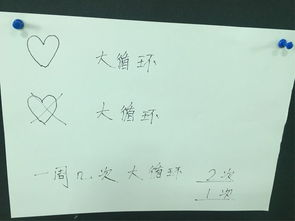 大循环
大循环
一周n.次 大循环 2次
1次